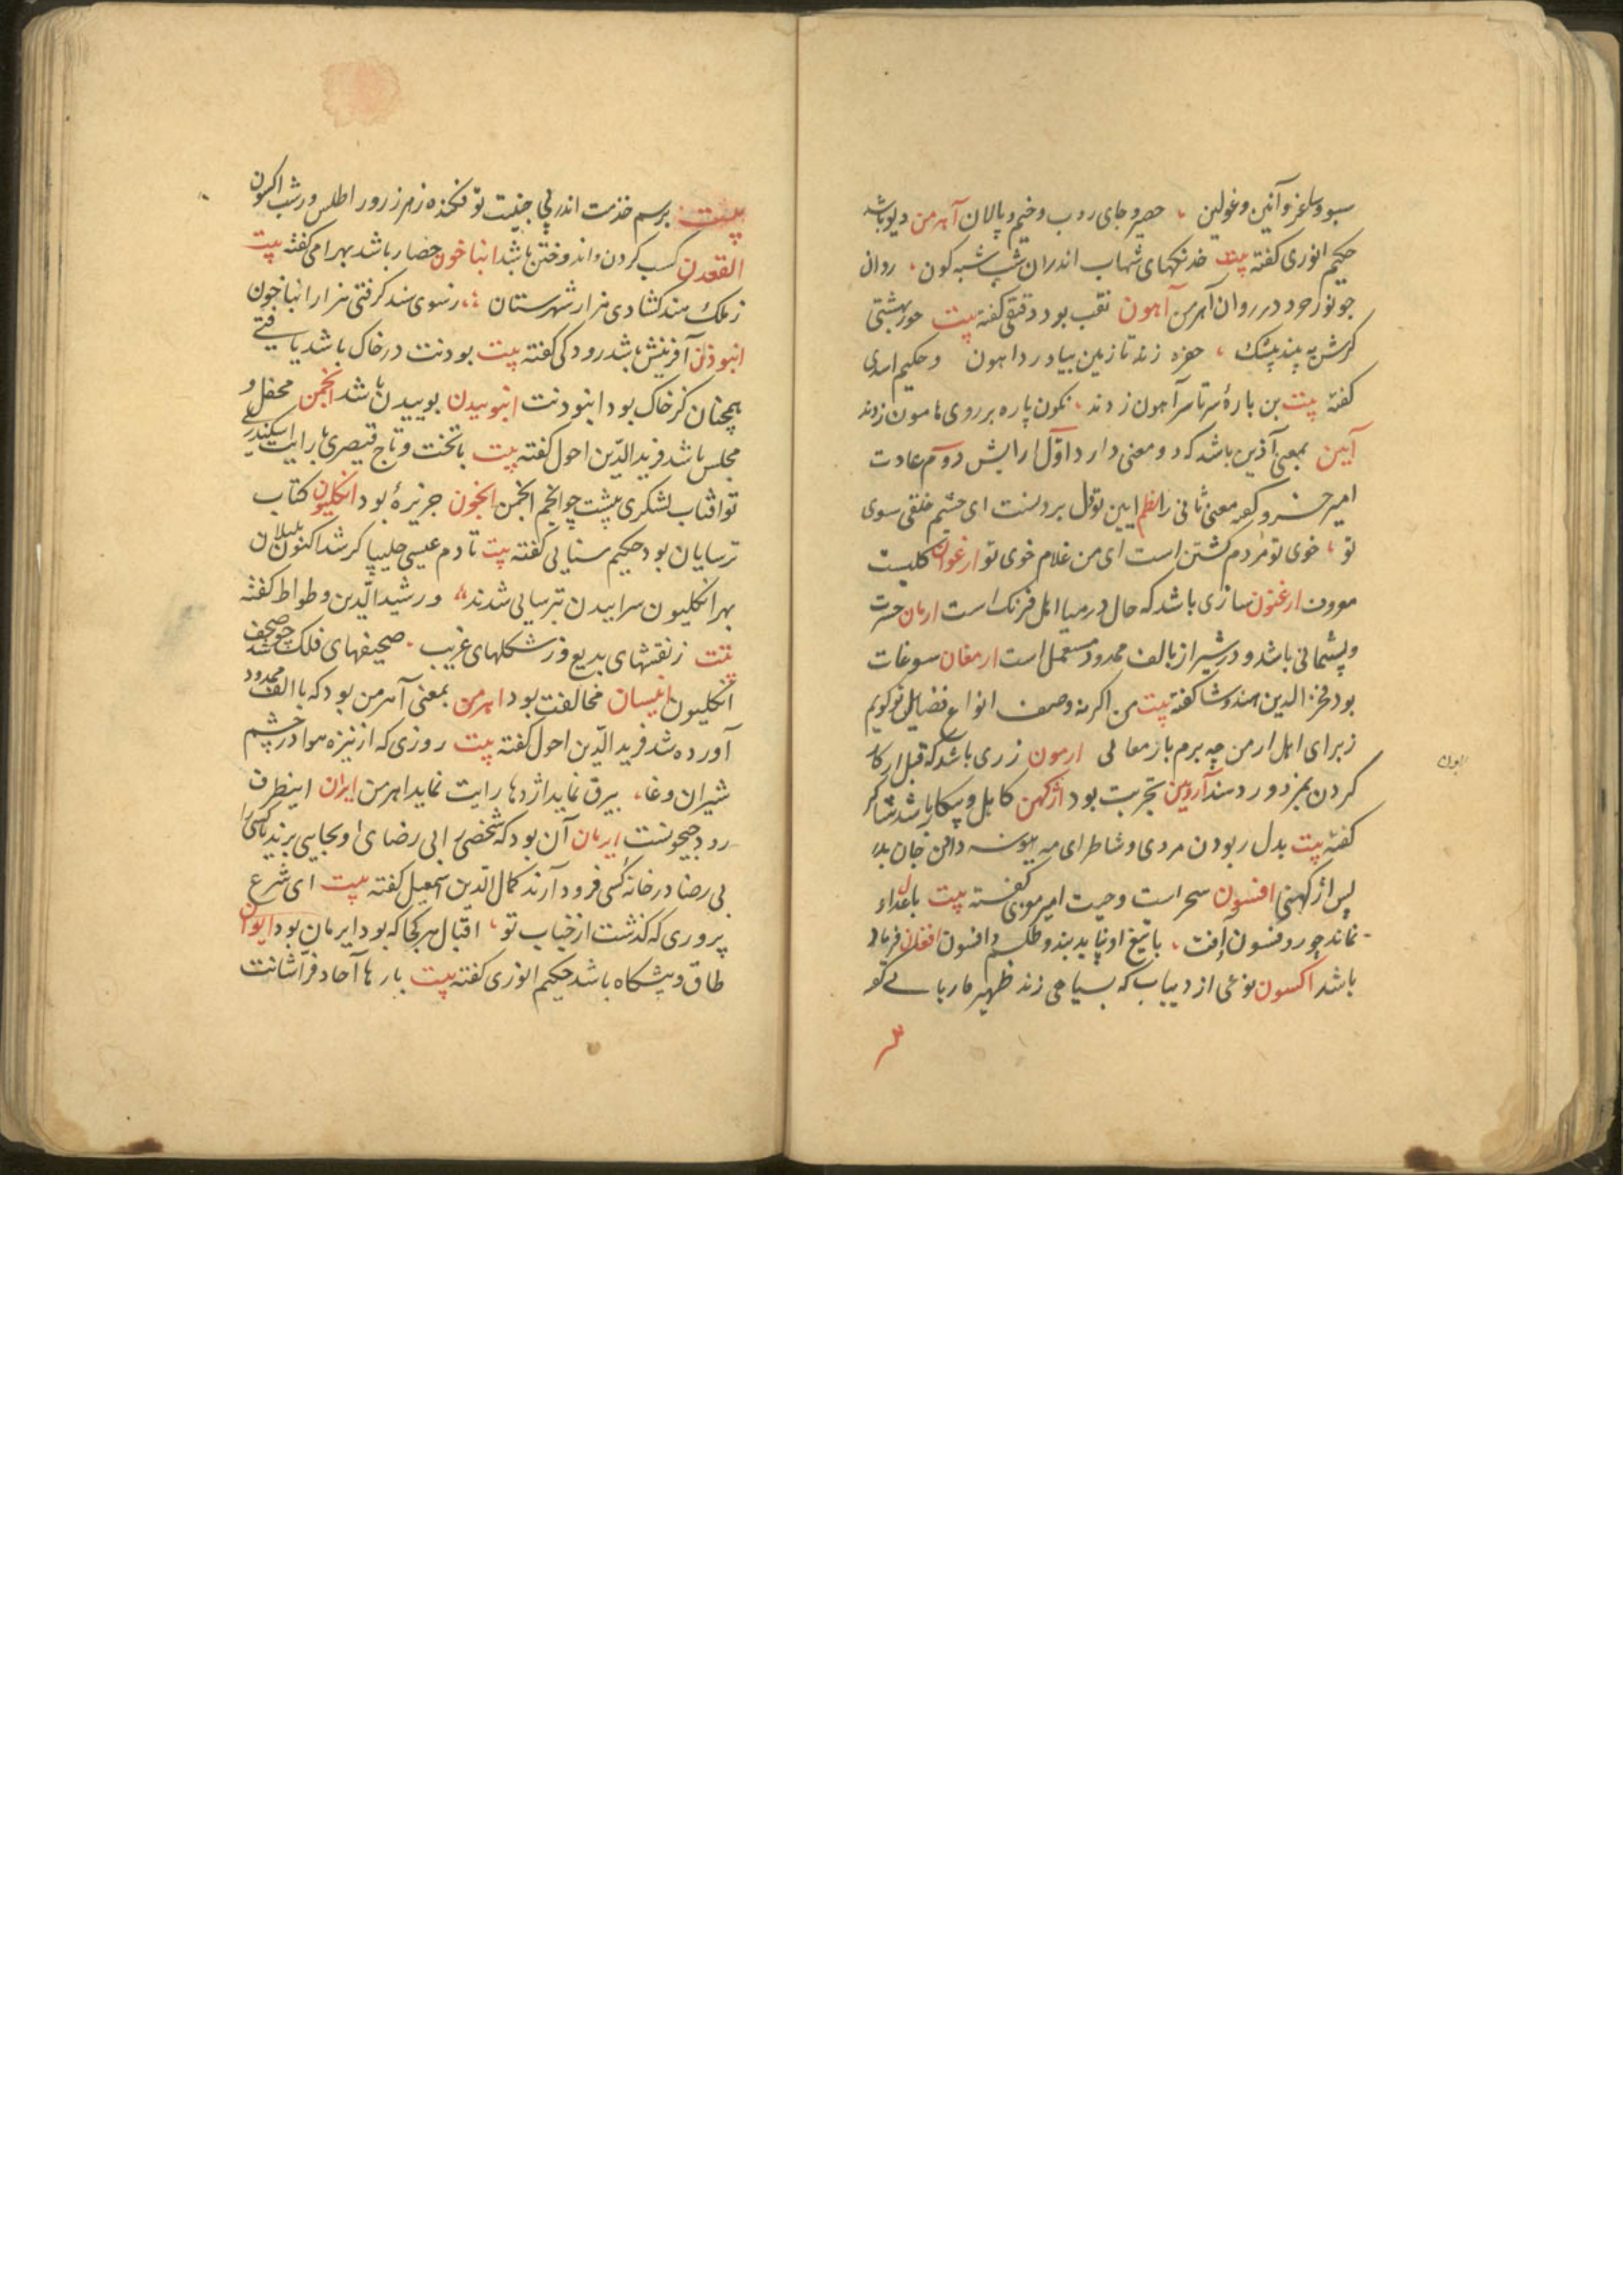 سبو و ساغر و آنین و غولین ، حصیر و جای روب و خیم و پالان آهرمن دیو باشد
حکیم انوری گفته بیت خدنکهای شهاب اندران شب شبه کون ، روان
جو نور خرد در روان آهرمن آهون نقب بود دقیقی گفته بیت حور بهشتی
کرش به بیند بیشک ، حفره زند تا زمین بیاورد آهون و حکیم اسدی
گفته بیت بن بارهٔ سرتاسر آهون زدند ، نکون پاره بر روی هامون زدند
آیین بمعنی آذین باشد که دو معنی دارد اوّل آرایش دوم عادت
امیر خسرو گفته معنی ثانی را نظم ایین تو دل بردنست ای چشم خلقی سوی
تو ، خوی تو مردم کشتن است ای من غلام خوی تو ارغوان کلیست
ارغنون سازی باشد که حال در میا اهل فرنک است ارمان حسرت
و پشیمانی باشد و در شیراز بالف ممدود مستعمل است ارمغان سوغات
بود فخر الدین هندوشا گفته بیت من اکر نه وصف انواع فضایل تو کویم
ز برای اهل ارمن چه برم بارمغانی ارمون زری باشد که قبل از کار
کردن بمزدور دهند آروین تجربت بود اژکهن کاهل و بیکار باشد شاکر
گفته بیت بدل ربودن مردی و شاطر ای مه
پس اژکهنی افسون سحر است و حیت امیر معزی گفته بیت باعداء
نماند چو رو فسون آفت ، با تیغ او نپاید بند و طلسم و افسون افغان فریاد
باشد اکسون نوعی از دیباب که بسیاهی زند ظهیر فاریابی گو
بیت برسم خدمت اندر پی جنیبت تو فکنده زهر ز روز اطلس و ز شب اکسون
الفغدن کسب کردن و اندوختن باشد انباخون حصار باشد بهرامی گفته بیت
ز ملک هند کشادی هزار شهرستان ، ز سوی سند کرفتی هزار انباخون
انبوذن آفرینش باشد رودکی گفته بیت بودنت در خاک باشد یافتی
همچنان کز خاک بود انبودنت انبوییدن بوییدن باشد انجمن محفل و
مجلس باشد فرید الدّین احول گفته بیت با تخت و تاج قیصری با رایت اسکندری
تو افتاب لشکری پیشت چو انجم انجمن انجون جزیرهٔ بود انکلیون کتاب
ترسایان بود حکیم سنایی گفته بیت تا دم عیسی چلیپا کر شد اکنون بلبلان
بهر انکلیون سراییدن بترسایی شدند ، و رشید الدّین وطواط گفته
بیت ز نقشهای بدیع و ز شکلهای غریب ، صحیفهای فلک شد چو صحف
انکلیون انیسان مخالفت بود اهرمن بمعنی آهرمن بود که با الف ممدود
آورده شد فرید الدّین احول گفته بیت روزی که از نیزه هوا در چشم
شیران وغا ، بیرق نماید اژدها رایت نماید اهرمن ایران اینطرف
رود جیحونست ایرمان آن بود که شخصی را بی رضای او بجایی برند یا کسی را
بی رضا در خانهٔ کسی فرود آرند کمال الدّین اسمعیل گفته بیت ای شرع
پروری که کذشت از خباب تو ، اقبال هر کجا که بود ایرمان بود ایوان
طاق و پیشکاه باشد حکیم انوری گفته بیت بارها آحاد فرّاشانت